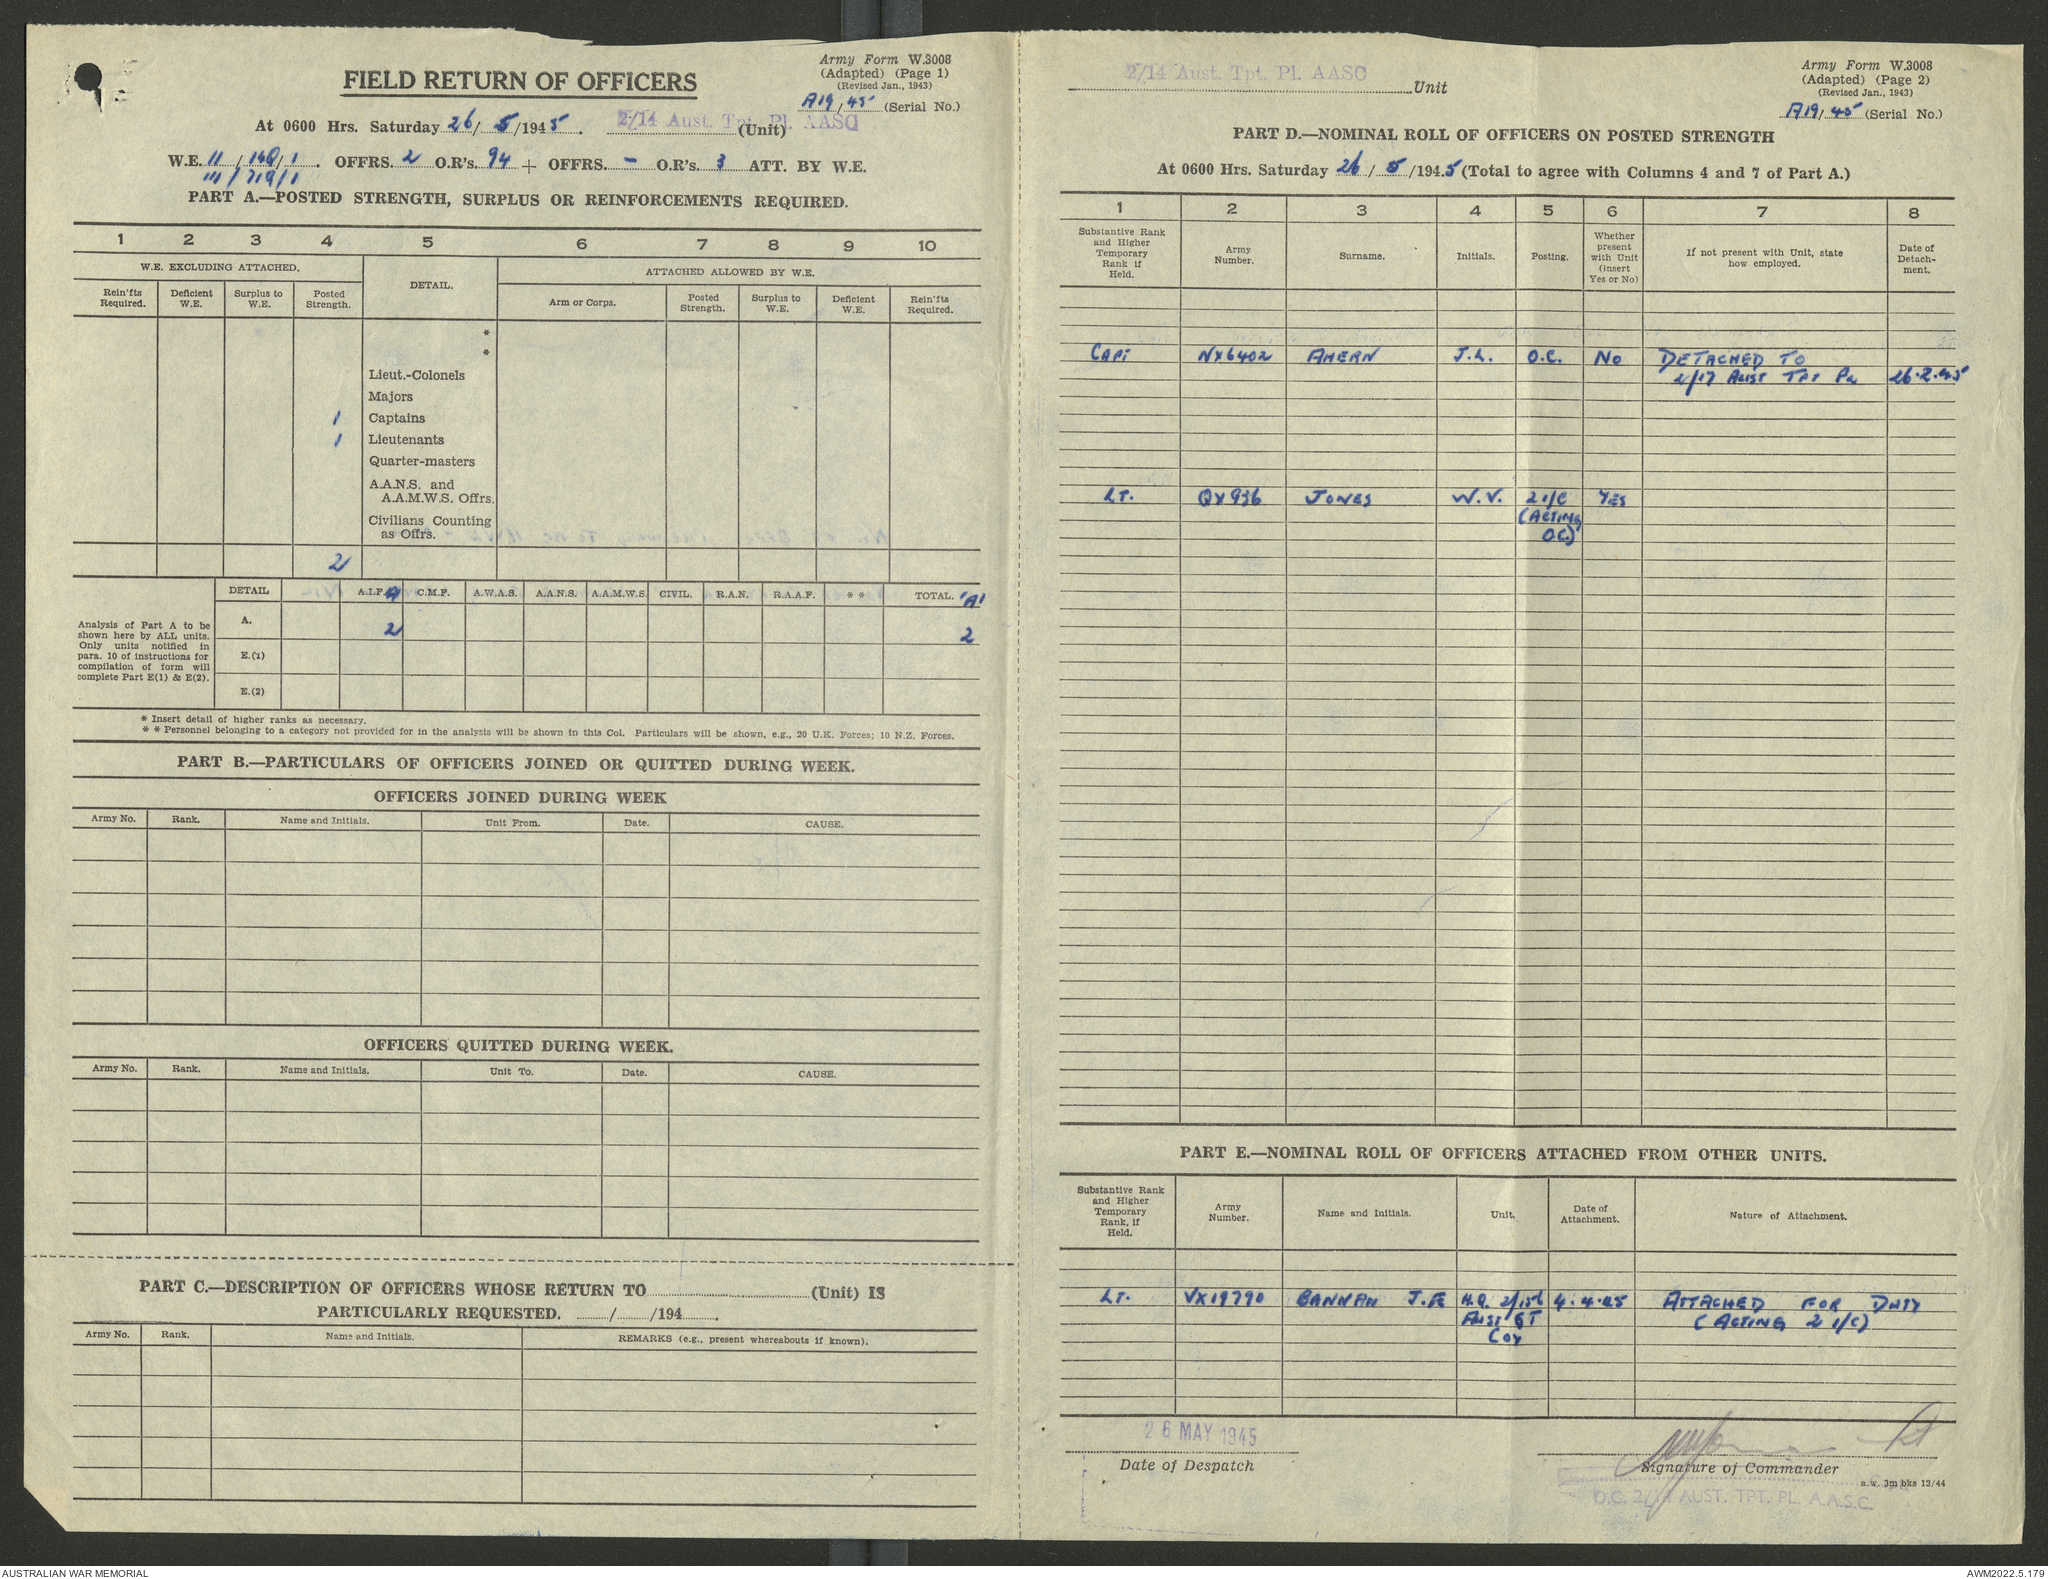 Army Form W.3008
(Adapted) (Page 1)
(Revised Jan., 1943)
FIELD RETURN OF OFFICERS
A19/45 (Serial No.)
At 0600 Hrs. Saturday 26/5/1945. 2/14 Aust. Tpt. Pl. AASC (Unit)
W.E. 11/160/1. OFFRS. 2 O.R's. 94 + OFFRS. - O.R's. 3 ATT. BY W.E.
111/719/1
PART A.—POSTED STRENGTH, SURPLUS OR REINFORCEMENTS REQUIRED.
1 2 3 4 5 6 7 8 9 10
W.E. EXCLUDING ATTACHED. DETAIL. ATTACHED ALLOWED BY W.E.
Rein'fts Required. Deficient W.E. Surplus to W.E. Posted Strength. Arm or Corps. Posted Strength. Surplus to W.E. Deficient W.E. Rein'fts Required.
*
*
Lieut.-Colonels
Majors
1 Captains
1 Lieutenants
Quarter-masters
A.A.N.S. and
A.A.M.W.S. Offrs.
Civilians Counting
as Offrs.
2
DETAIL A.I.F. C.M.F. A.W.A.S. A.A.N.S. A.A.M.W.S. CIVIL. R.A.N. R.A.A.F. ** TOTAL. 'A'
Analysis of Part A to be
shown here by ALL units.
Only units notified in
para. 10 of instructions for
compilation of form will
complete Part E(1) & E(2).
A. 2 2
E.(1)
E.(2)
* Insert detail of higher ranks as necessary.
* * Personnel belonging to a category not provided for in the analysis will be shown in this Col. Particulars will be shown, e.g., 20 U.K. Forces; 10 N.Z. Forces.
PART B.—PARTICULARS OF OFFICERS JOINED OR QUITTED DURING WEEK.
OFFICERS JOINED DURING WEEK
Army No. Rank. Name and Initials. Unit From. Date. CAUSE.
OFFICERS QUITTED DURING WEEK.
Army No. Rank. Name and Initials. Unit To. Date. CAUSE.
PART C.—DESCRIPTION OF OFFICERS WHOSE RETURN TO (Unit) IS
PARTICULARLY REQUESTED. / /194 .
Army No. Rank. Name and Initials. REMARKS (e.g., present whereabouts if known).
2/14 Aust. Tpt. Pl. AASC Unit
Army Form W.3008
(Adapted) (Page 2)
(Revised Jan., 1943)
A19/45 (Serial No.)
PART D.—NOMINAL ROLL OF OFFICERS ON POSTED STRENGTH
At 0600 Hrs. Saturday 26/5/1945 (Total to agree with Columns 4 and 7 of Part A.)
1 2 3 4 5 6 7 8
Substantive Rank and Higher Temporary Rank if Held. Army Number. Surname. Initials. Posting. Whether present with Unit (insert Yes or No) If not present with Unit, state how employed. Date of Detachment.
CAPT NX6402 AHERN J.L. O.C. NO DETACHED TO
2/17 AUST TPT PL 26.2.45
LT. QX936 JONES W.V. 2 I/C YES
(ACTING
O.C.)
PART E.—NOMINAL ROLL OF OFFICERS ATTACHED FROM OTHER UNITS.
Substantive Rank and Higher Temporary Rank, if Held. Army Number. Name and Initials. Unit. Date of Attachment. Nature of Attachment.
LT. VX19790 BANNAN J.F. H.Q. 2/156 4.4.45 ATTACHED FOR DUTY
AUST GT (ACTING 2 I/C)
COY
26 MAY 1945
Date of Despatch
WVJones Lt
Signature of Commander
a.w. 3m bks 12/44
O.C. 2/14 AUST. TPT. PL. A.A.S.C.
AUSTRALIAN WAR MEMORIAL
AWM2022.5.179